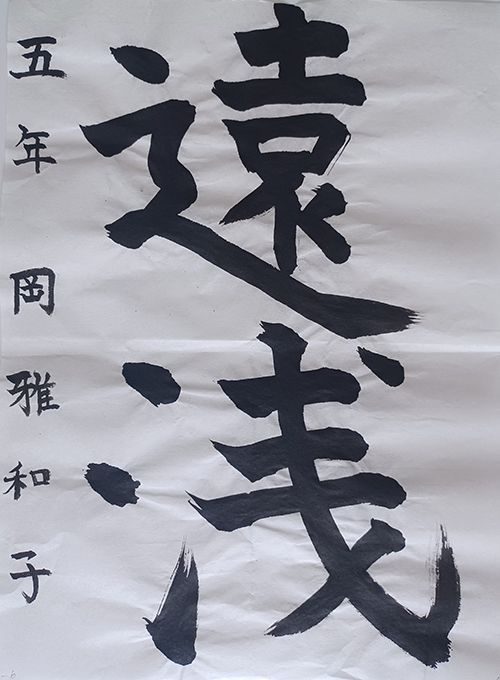 遠浅
五年 岡雅和子